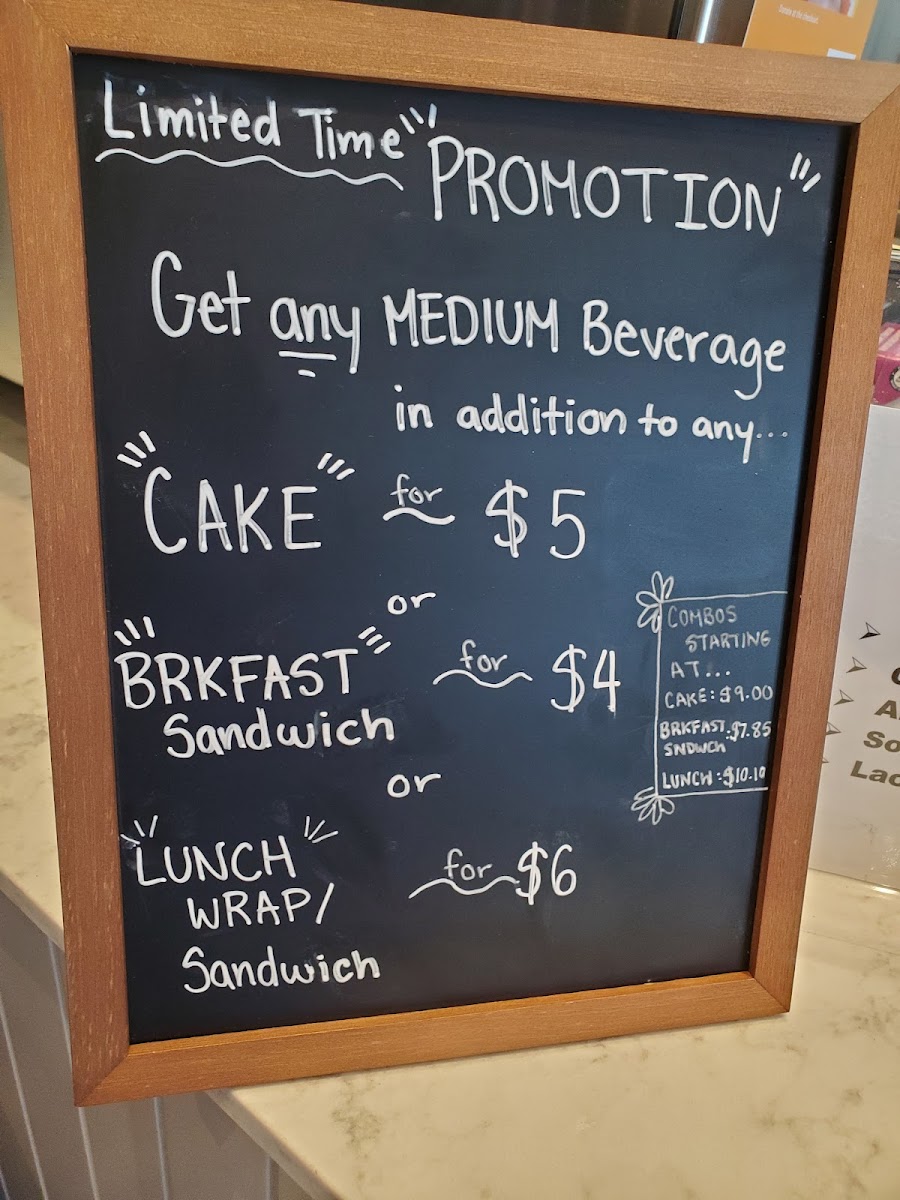 Limited Time "PROMOTION"
Get any MEDIUM Beverage
in addition to any...
"CAKE" for $5
or
"BRKFAST" for $4
Sandwich
or
"LUNCH" for $6
WRAP/
Sandwich
COMBOS
STARTING
AT...
CAKE: $9.00
BRKFAST: $7.85
SNDWCH
LUNCH: $10.10
So
Lac